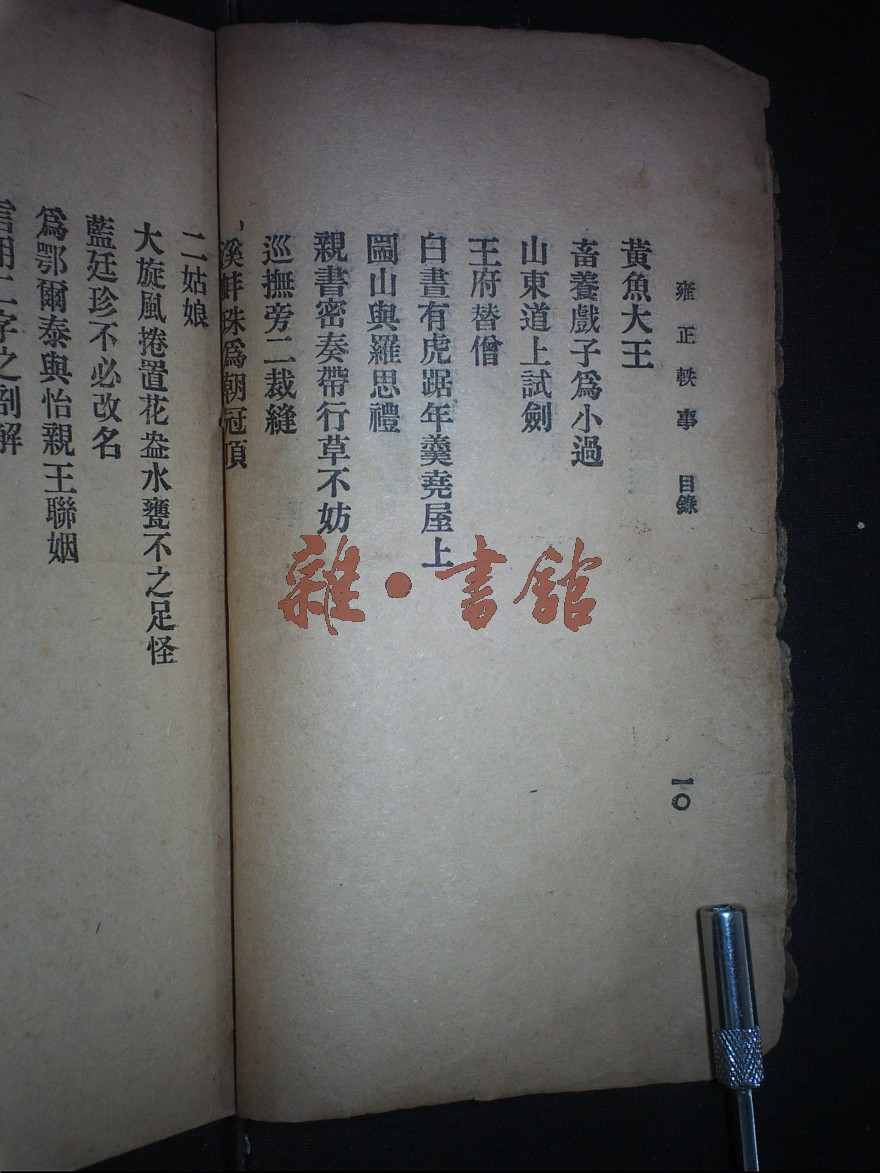 雍正軼事 目錄 一〇
黃魚大王
畜養戲子爲小過
山東道上試劍
王府替僧
白晝有虎踞年羹堯屋上
圖山與羅思禮
親書密奏帶行草不妨
巡撫旁二裁縫
溪蚌珠爲朝冠頂
二姑娘
大旋風捲置花盎水甕不之足怪
藍廷珍不必改名
爲鄂爾泰與怡親王聯姻
二字之剖解
雜·書館